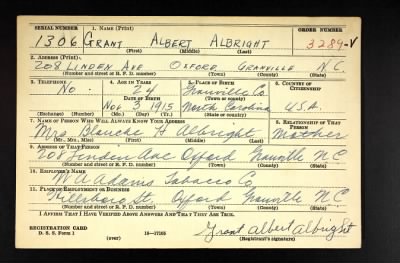 SERIAL NUMBER 1. NAME (Print) ORDER NUMBER
1306 GRANT ALBERT ALBRIGHT 3289-V
(First) (Middle) (Last)
2. ADDRESS (Print)
208 LINDEN AVE OXFORD GRANVILLE N.C.
(Number and street or R. F. D. number) (Town) (County) (State)
3. TELEPHONE 4. AGE IN YEARS 5. PLACE OF BIRTH 6. COUNTRY OF CITIZENSHIP
No. 24 Granville Co.
DATE OF BIRTH (Town or county)
Nov 3 1915 North Carolina U.S.A.
(Exchange) (Number) (Mo.) (Day) (Yr.) (State or country)
7. NAME OF PERSON WHO WILL ALWAYS KNOW YOUR ADDRESS 8. RELATIONSHIP OF THAT PERSON
Mrs. Blanche H Albright Mother
(Mr., Mrs., Miss) (First) (Middle) (Last)
9. ADDRESS OF THAT PERSON
208 Linden Ave Oxford Granville N.C.
(Number and street or R. F. D. number) (Town) (County) (State)
10. EMPLOYER'S NAME
W. A. Adams Tobacco Co.
11. PLACE OF EMPLOYMENT OR BUSINESS
Hillsboro St. Oxford Granville N.C.
(Number and street or R. F. D. number) (Town) (County) (State)
I AFFIRM THAT I HAVE VERIFIED ABOVE ANSWERS AND THAT THEY ARE TRUE.
REGISTRATION CARD
D. S. S. Form 1 (over) 16-17105 Grant Albert Albright
(Registrant's signature)